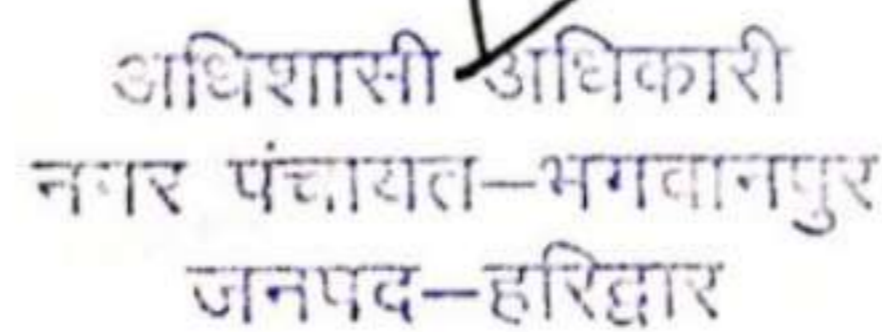 अधिशासी अधिकारी
नगर पंचायत–भगवानपुर
जनपद–हरिद्वार